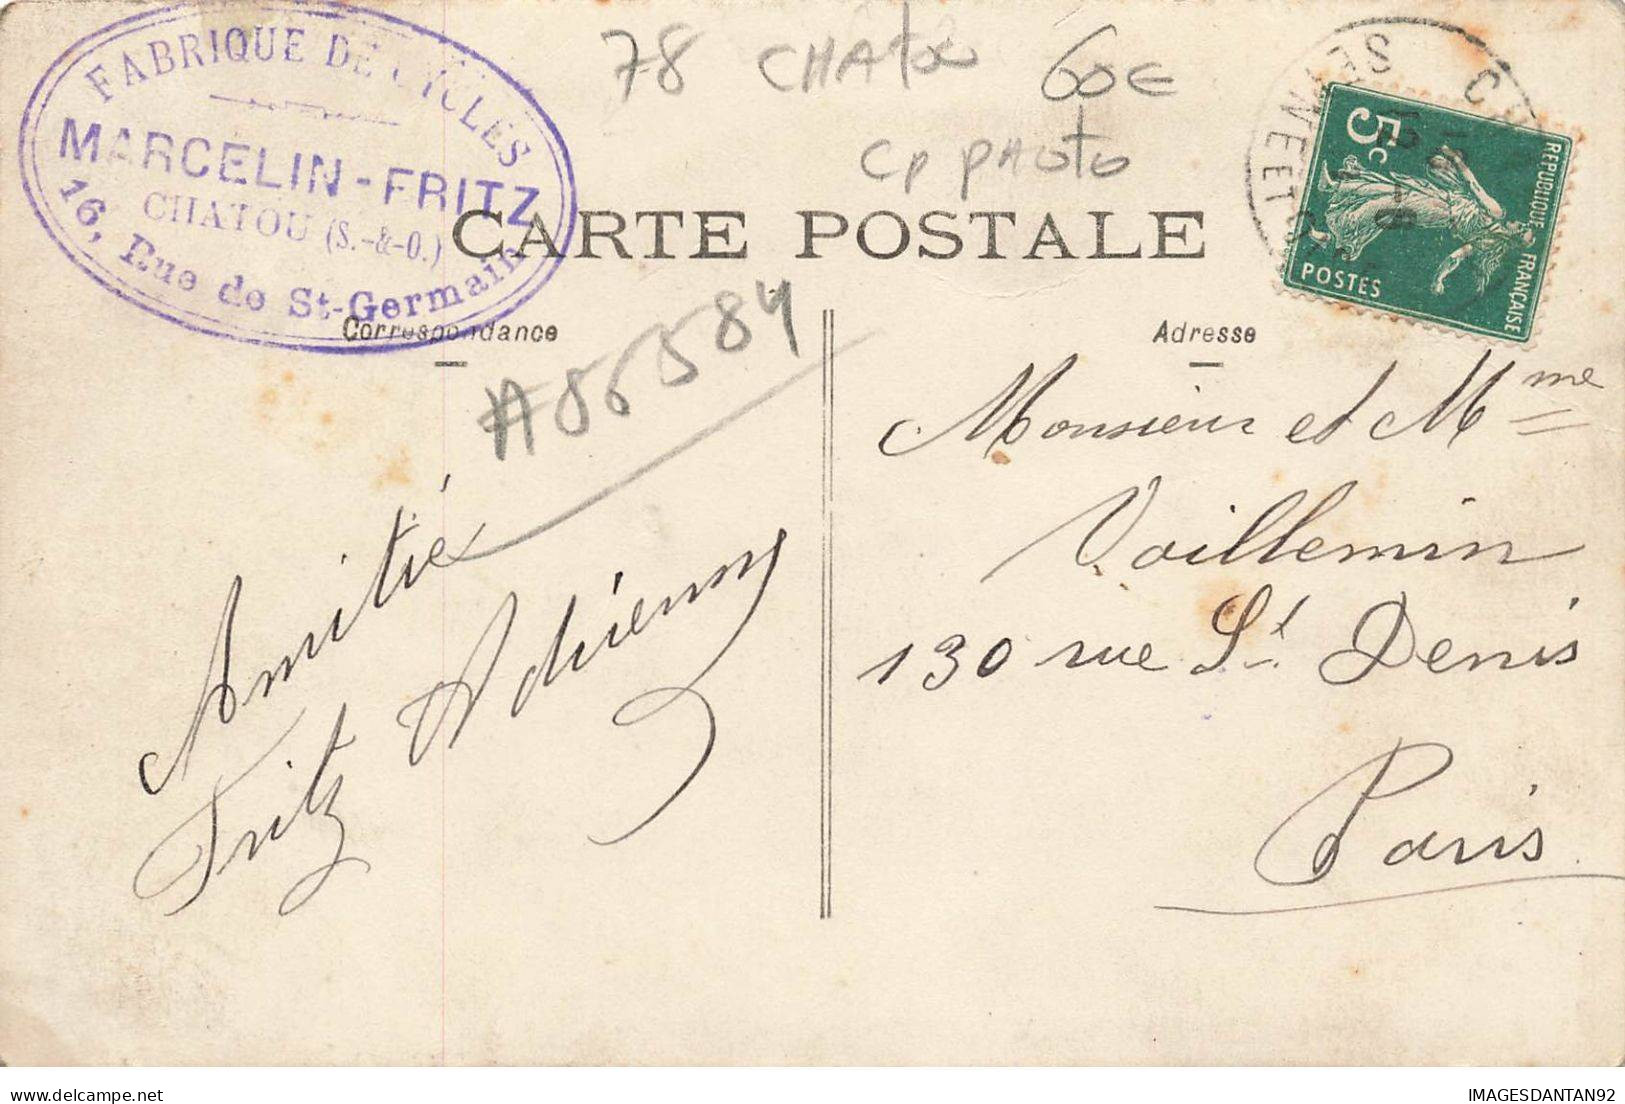 FABRIQUE DE CYCLES
MARCELIN-FRITZ
CHATOU (S.-&-O.)
16, Rue de St-Germain
78 CHATOU 60€
CP PHOTO
CARTE POSTALE
5c
REPUBLIQUE FRANÇAISE
POSTES
SEINE ET O
Correspondance
Adresse
A86584
Monsieur et Mme
Voillemin
130 rue St Denis
Paris
Amitié
Fritz Adrienne
IMAGESDANTAN92